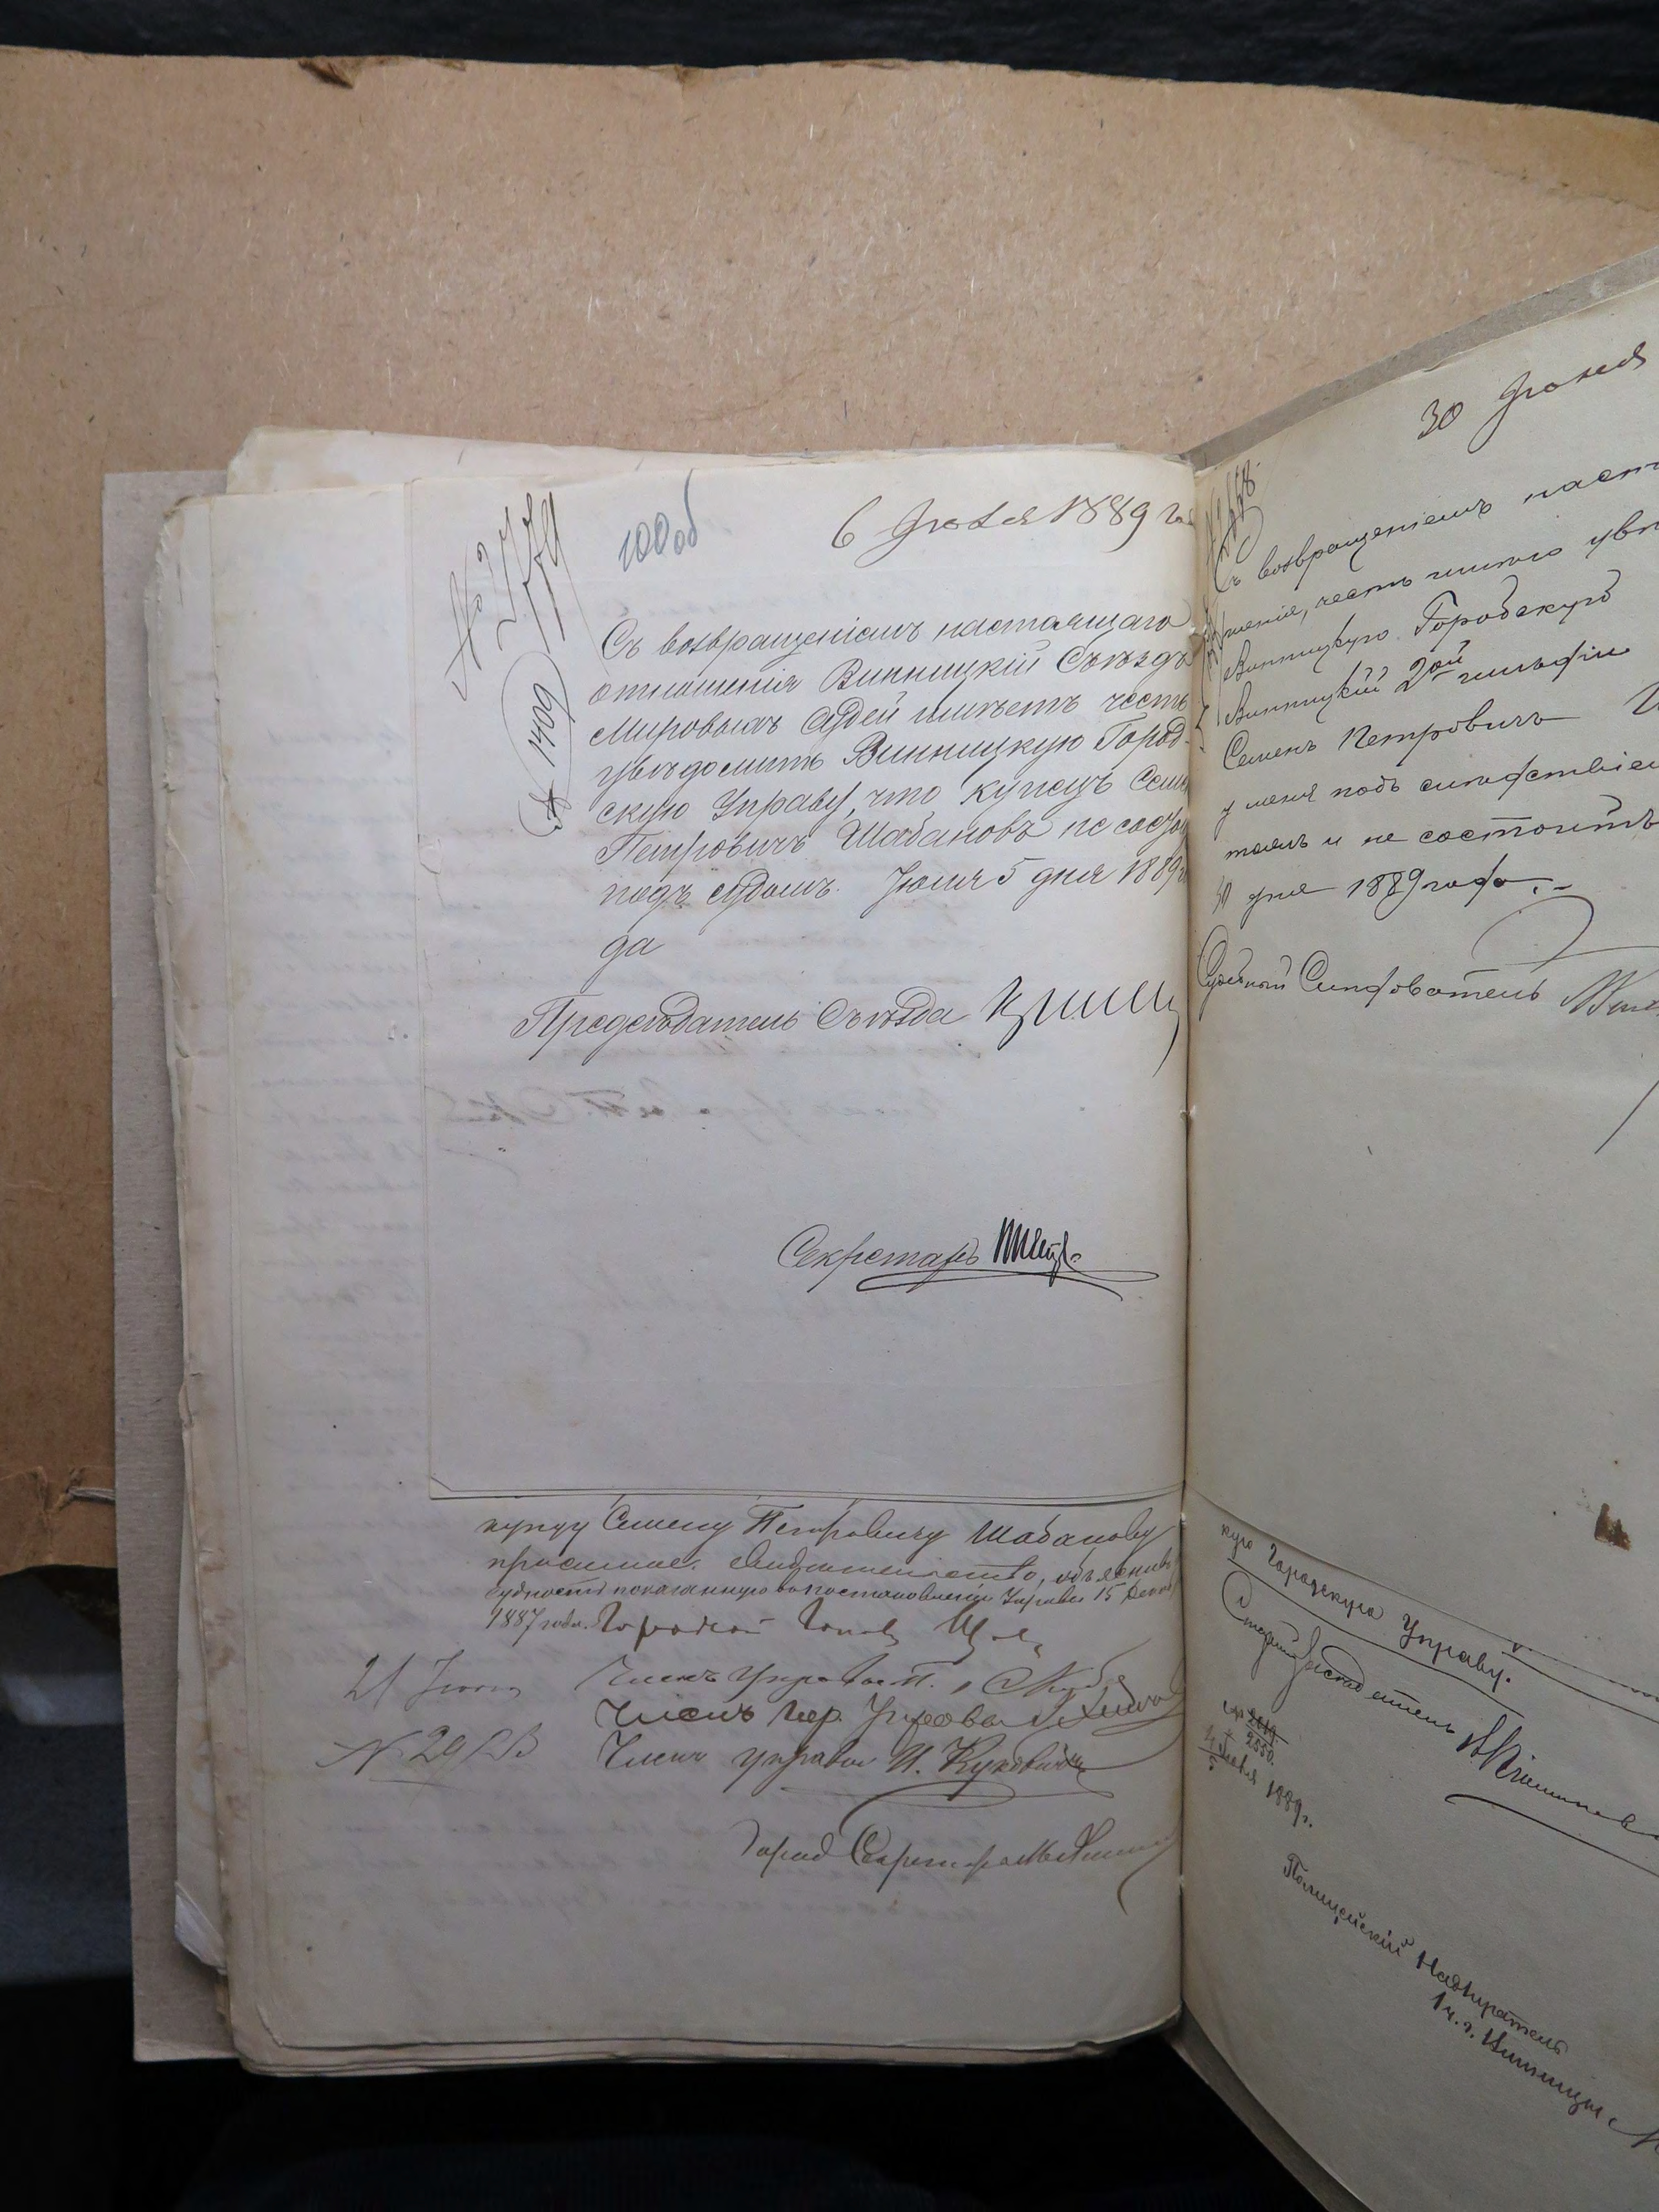 100 об
6 Июля 1889 го
№ 1409
Съ возвращеніемъ настоящаго
отношенія Винницкій Съѣздъ
Мировыхъ Судей имѣетъ честь
увѣдомить Винницкую Город-
скую Управу, что купецъ Семе
Петровичъ Шабановъ не состои
подъ судомъ. Іюля 5 дня 1889 го
да
Предсѣдатель Съѣзда
Секретарь
купцу Семену Петровичу Шабанову
просимое свидѣтельство, объяснивъ
судность показанную въ постановленіи Управы 15
1887 года. Городской Голова
21 Іюня Членъ Управы
Членъ Гор. Управы
№ Членъ Управы И.
Город Секретарь
30 Іюня
Съ возвращеніемъ наст
шенія, честь имѣю увѣ
Винницкую Городскую
Винницкій 2ой гильдіи
Семенъ Петровичъ
у меня подъ слѣдствіем
тоялъ и не состоитъ
30 дня 1889 года.
Судебный Слѣдователь
кую Городскую Управу.
1889 г.
Полицейскій Надзиратель
1 ч. г. Винницы